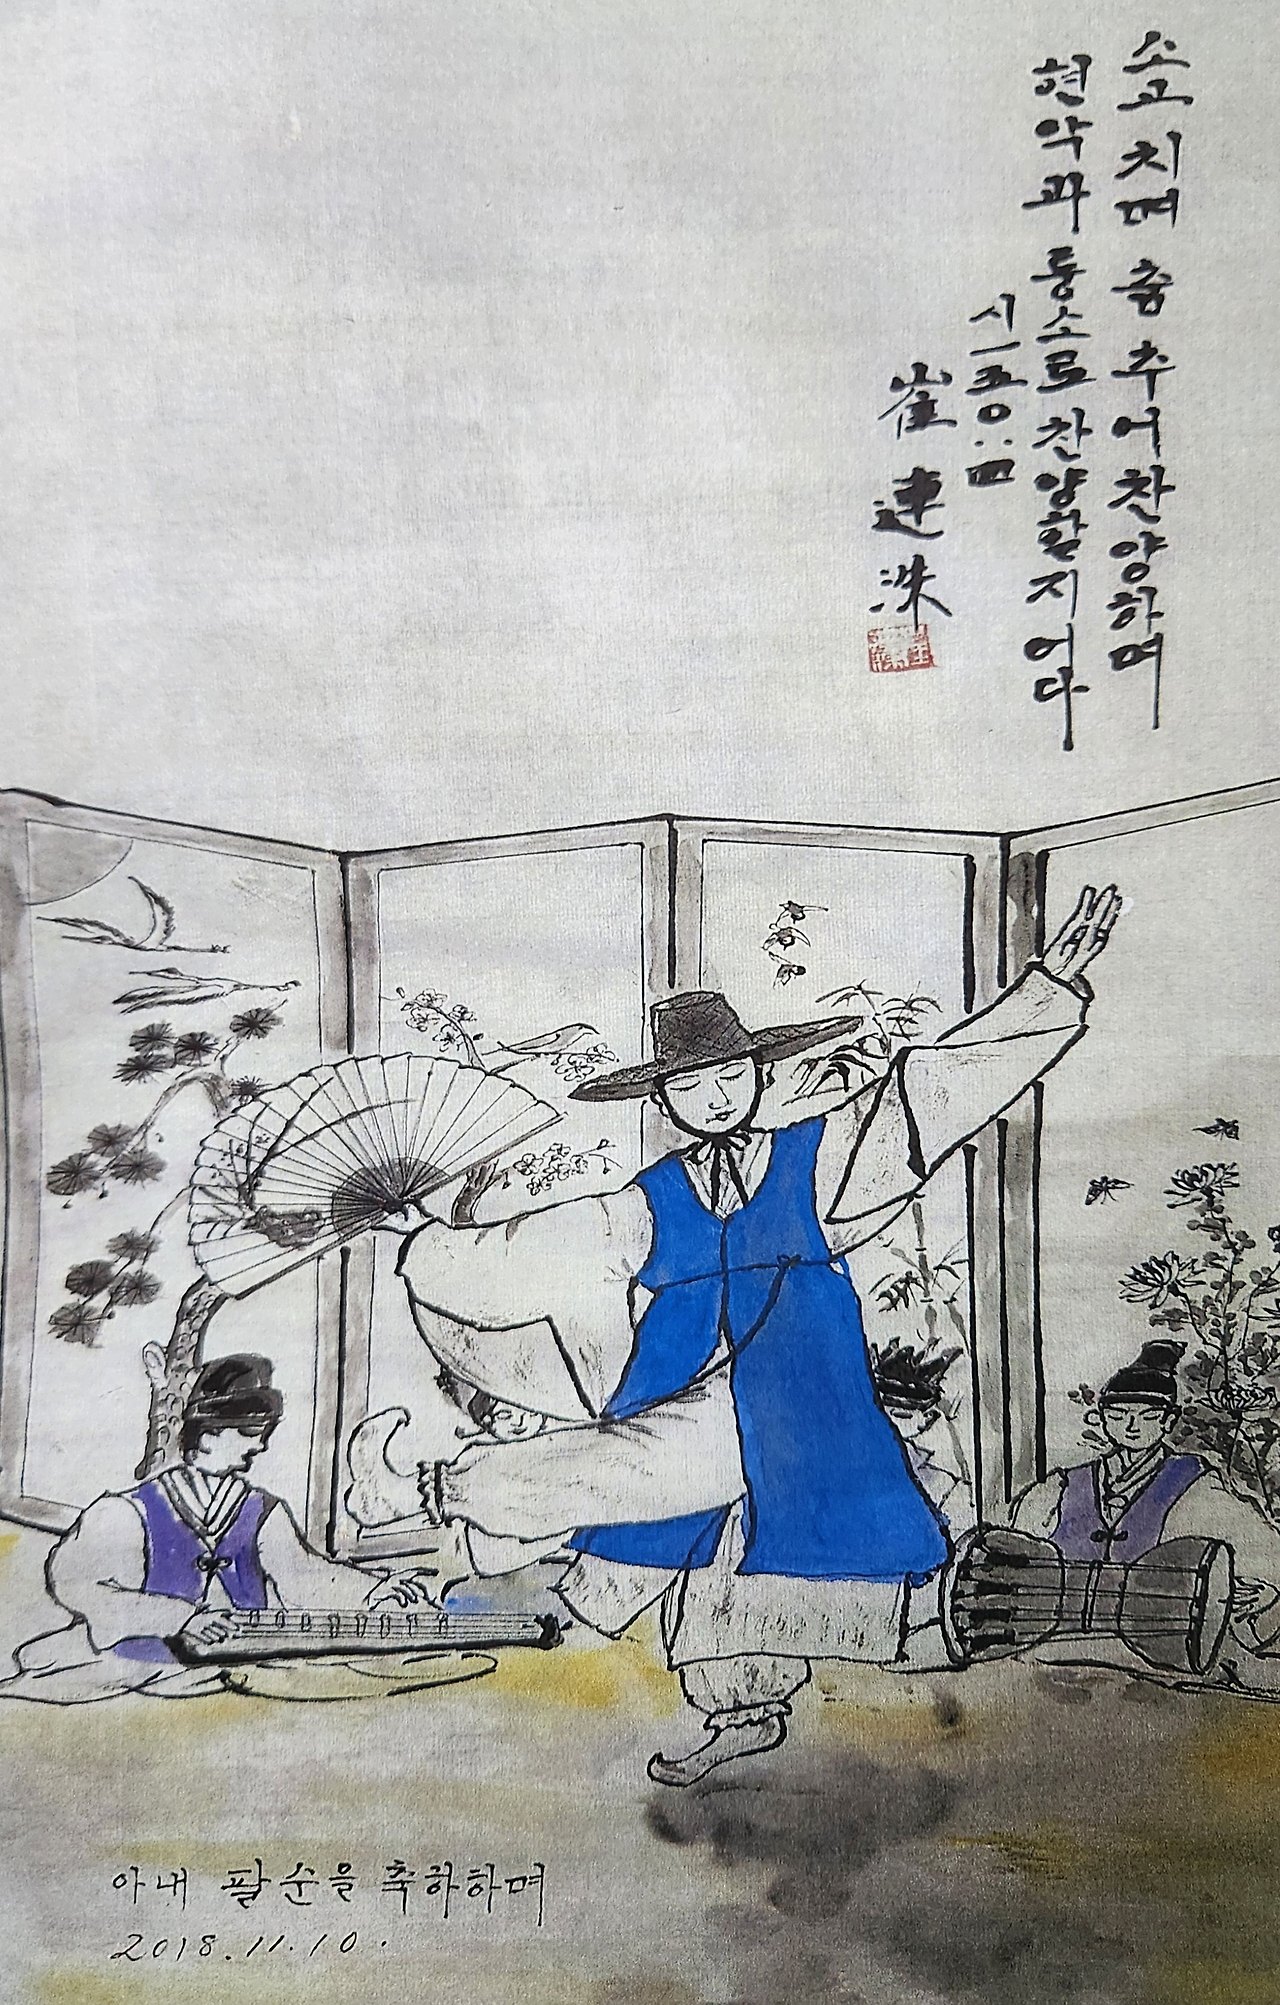 소고 치며 춤 추어 찬양하며
현악과 퉁소로 찬양할지어다
시一五〇:四
崔連洙
아내 팔순을 축하하며
2018.11.10.